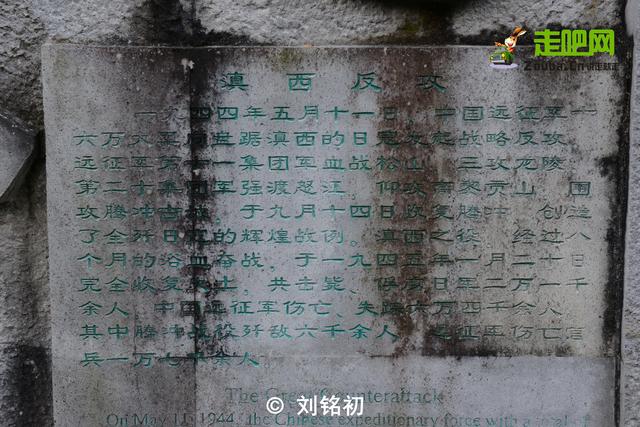 走吧网
Zouba.Cn 说走就走
滇西反攻
一九四四年五月十一日，中国远征军十
六万大军向盘踞滇西的日寇发起战略反攻
远征军第十一集团军血战松山 三攻龙陵
第二十集团军强渡怒江 仰攻高黎贡山 围
攻腾冲 于九月十四日收复腾冲 创造
了全歼日军的辉煌战例。滇西之役 经过八
个月的浴血奋战，于一九四五年一月二十日
完全收复失土，共击毙、俘虏日军二万一千
余人 中国远征军伤亡、失踪六万四千余人
其中腾冲战役歼敌六千余人 远征军伤亡官
兵一万八千余人
The Great Counterattack
On May 11, 1944, the Chinese expeditionary force with a total of
© 刘铭初